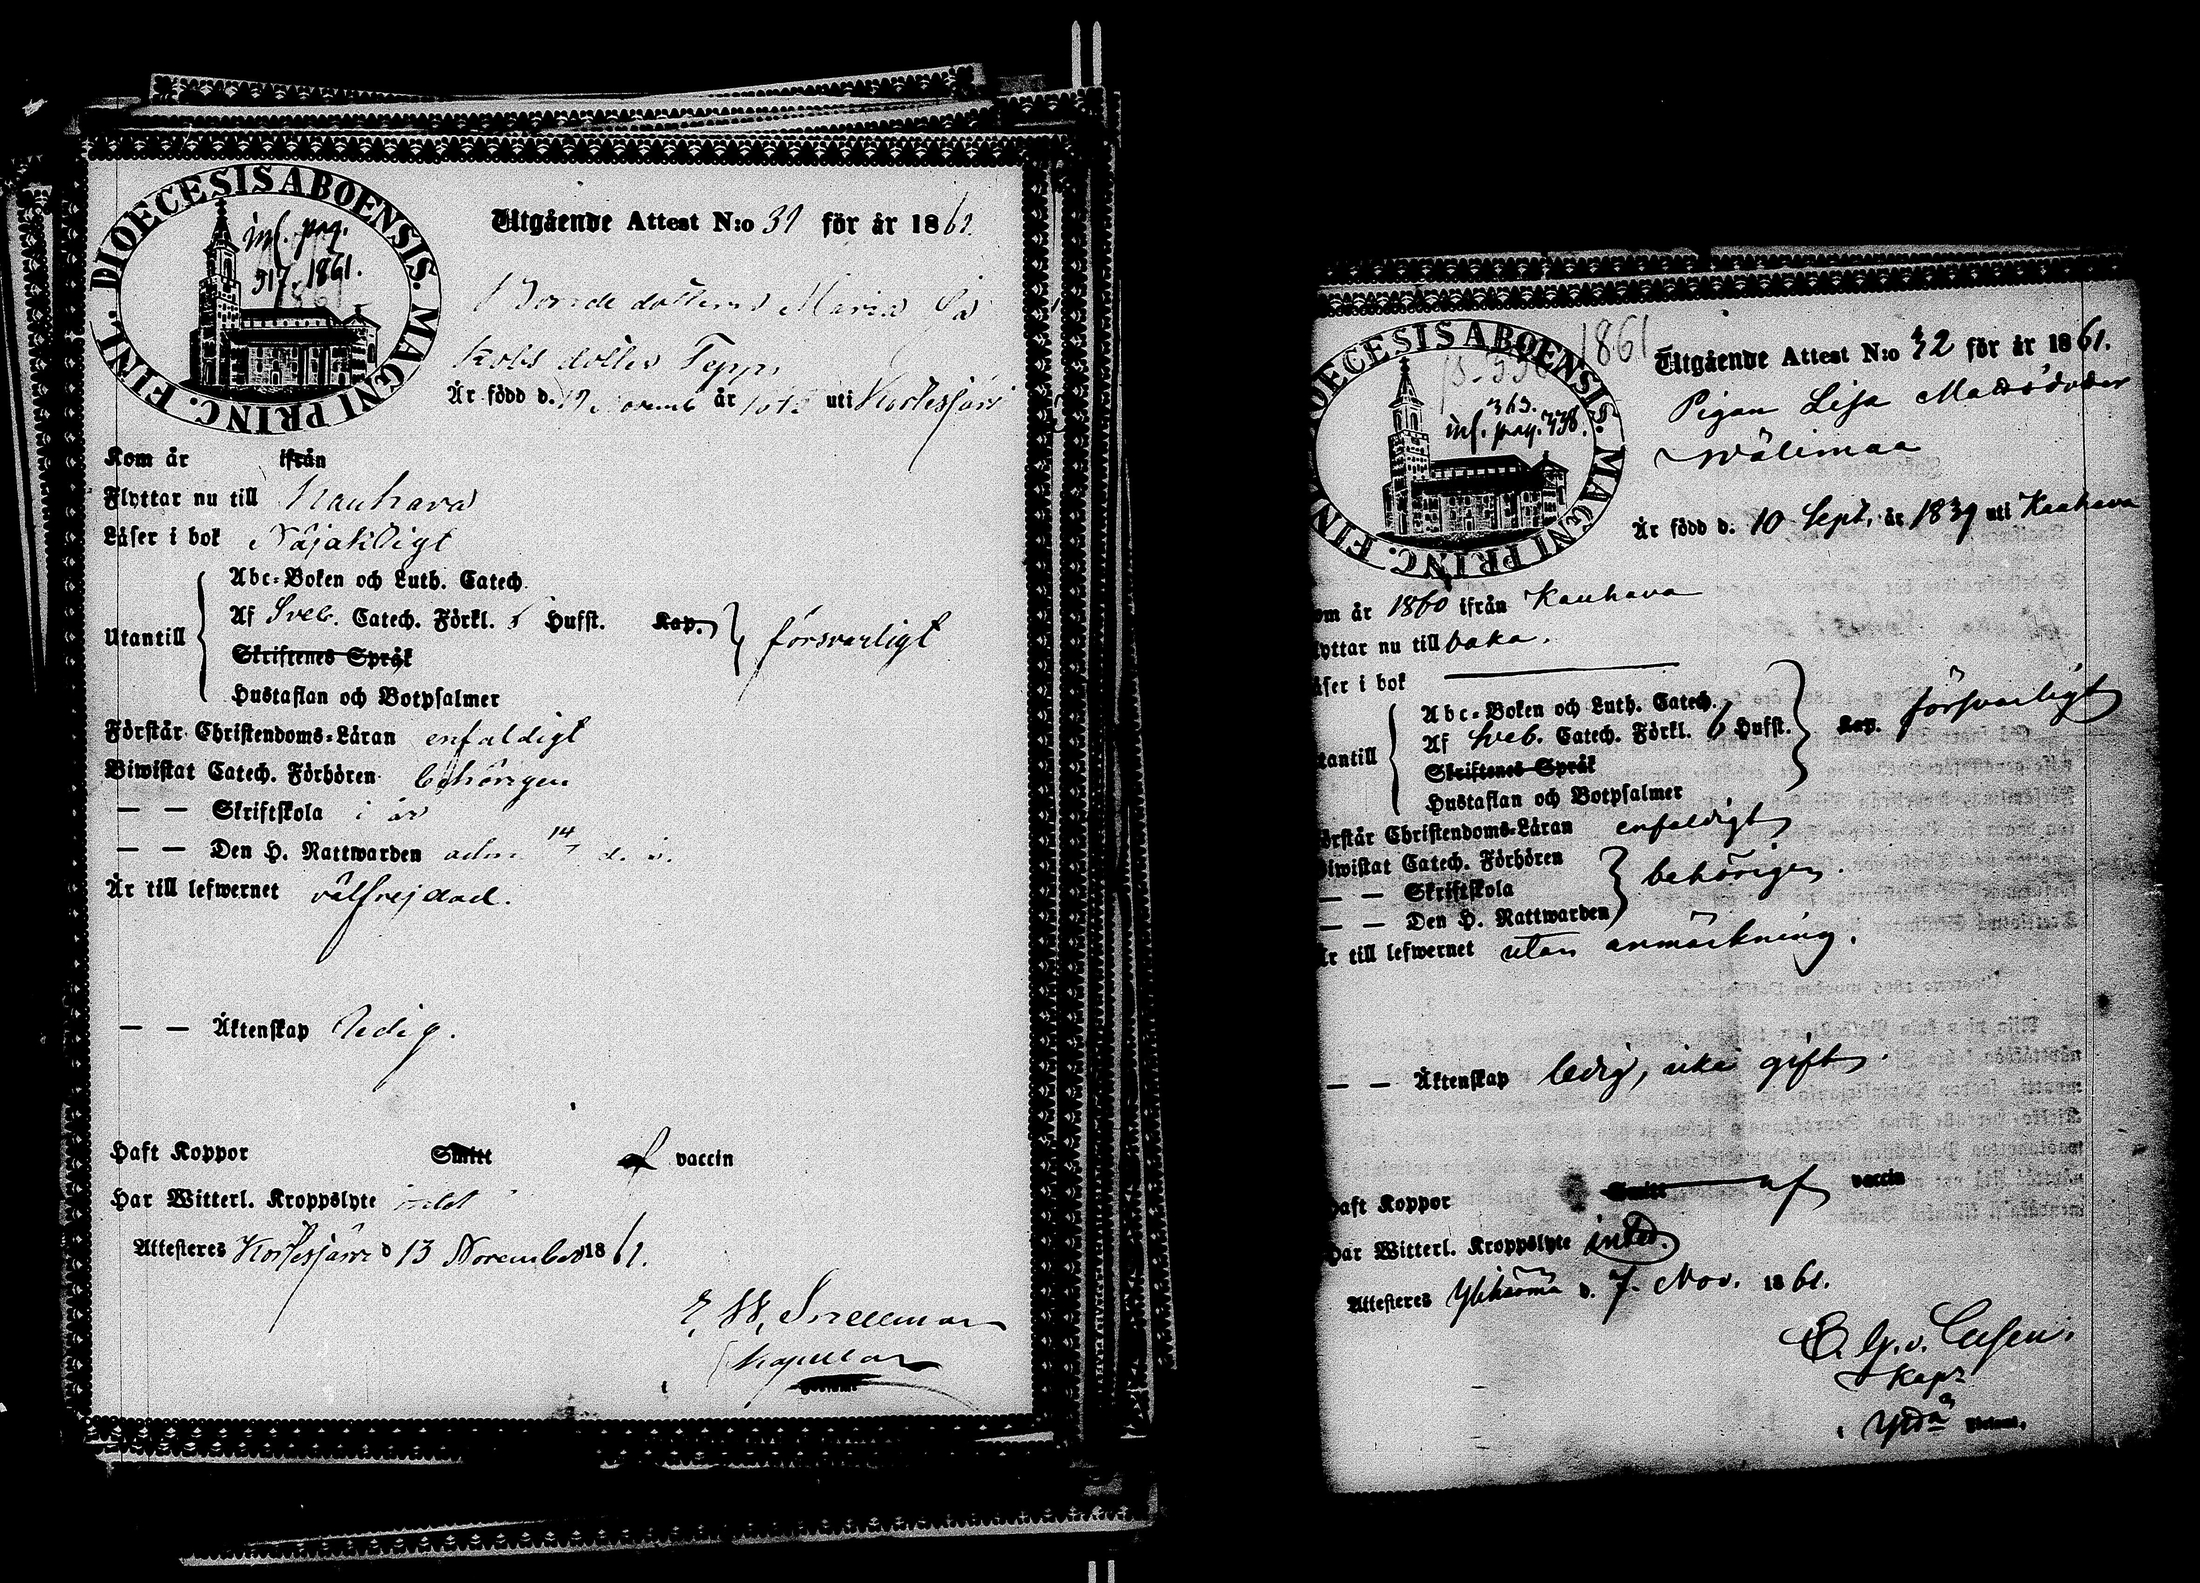 DIOECESIS ABOENSIS. MAGNI PRINC. FINL.
inf. pag.
317. 1861.
1861
Utgående Attest N:o 31 för år 1861.
Bonde dottern Maria Ja
kobs dotter Tepp
Är född d. 19 Novemb år uti Kortesjärvi
Kom år ifrån
Flyttar nu till Kauhava
Läser i bok Nöjaktigt
Utantill
Abc-Boken och Luth. Catech.
Af Sveb. Catech. Förkl. 5 Hufst. Kap. försvarligt
Skriftenes Språk
Hustaflan och Botpsalmer
Förstår Christendoms-Läran enfaldigt
Biwistat Catech. Förhören behörigen
— — Skriftskola i år
— — Den H. Nattwarden adm 14/7 d. å.
Är till lefwernet välfrejdad.
— — Äktenskap ledig.
Haft Koppor Smitt af vaccin
Har Witterl. Kroppslyte intet
Attesteres Kortesjärvi d 13 November 1861.
E. W. Snellman
Kapellan
DIOECESIS ABOENSIS. MAGNI PRINC. FIN
1861
363.
inf. pag. 338.
Utgående Attest N:o 32 för år 1861.
Pigan Lisa Mattsdotter
Wälimaa
Är född d. 10 Sept. år 1839 uti Kauhava
om år 1860 ifrån Kauhava
lyttar nu till baka.
äser i bok
tantill
Abc-Boken och Luth. Catech.
Af Sveb. Catech. Förkl. 6 Hufst. Kap. försvarligt
Skriftenes Språk
Hustaflan och Botpsalmer
örstår Christendoms-Läran enfaldigt
Biwistat Catech. Förhören
— — Skriftskola behörigen.
— — Den H. Nattwarden
Är till lefwernet utan anmärkning.
— — Äktenskap ledig, icke gift.
aft Koppor Smitt af vaccin
Har Witterl. Kroppslyte intet.
Attesteres Ylihärmä d. 7. Nov. 1861.
E. G. v. Essen.
Kapl.